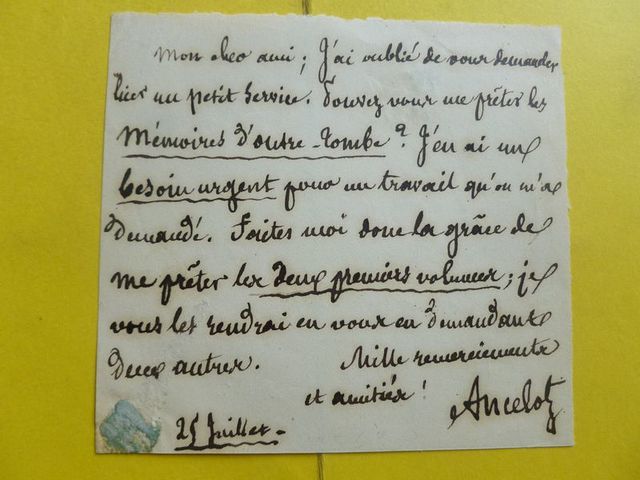 Mon cher ami ; J'ai oublié de vous demander
hier un petit service. Pouvez vous me prêter les
Mémoires d'outre-tombe ? J'en ai un
besoin urgent pour un travail qu'on m'a
demandé. Faites moi donc la grâce de
me prêter les deux premiers volumes ; je
vous les rendrai en vous en demandant
deux autres. Mille remerciements
et amitiés !
Ancelot
25 Juillet -